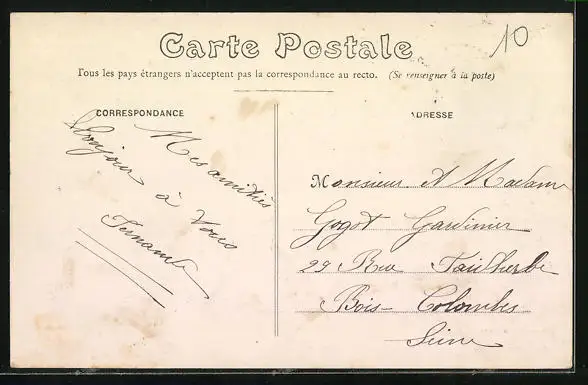 10
Carte Postale
Tous les pays étrangers n'acceptent pas la correspondance au recto. (Se renseigner à la poste)
CORRESPONDANCE
Mes amitiés
Bonjour à Vous
Fernande
ADRESSE
Monsieur et Madame
Gogot Gardinier
29 Rue Faidherbe
Bois Colombes
Seine